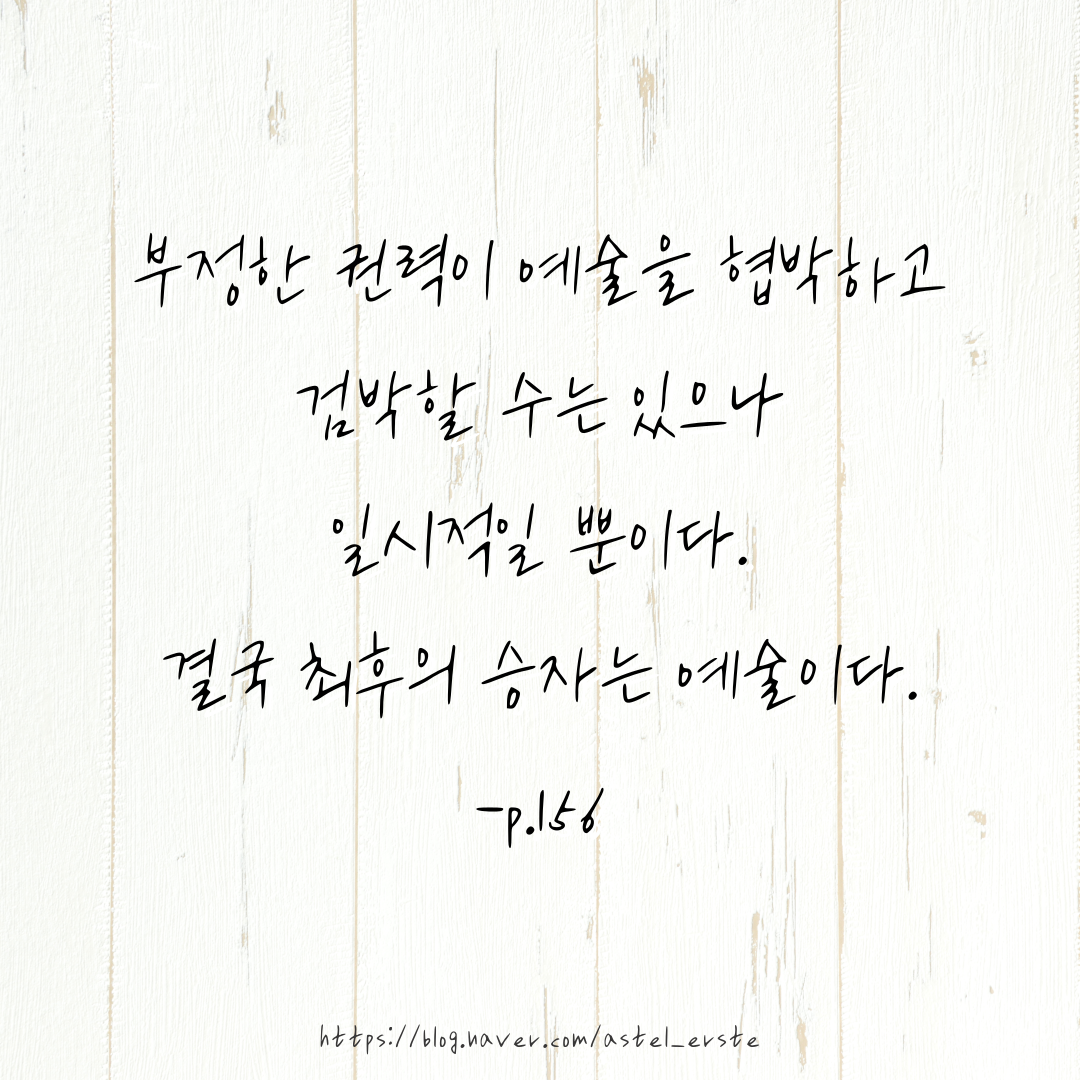 부정한 권력이 예술을 협박하고
겁박할 수는 있으나
일시적일 뿐이다.
결국 최후의 승자는 예술이다.
-p.156
https://blog.naver.com/astel_erste